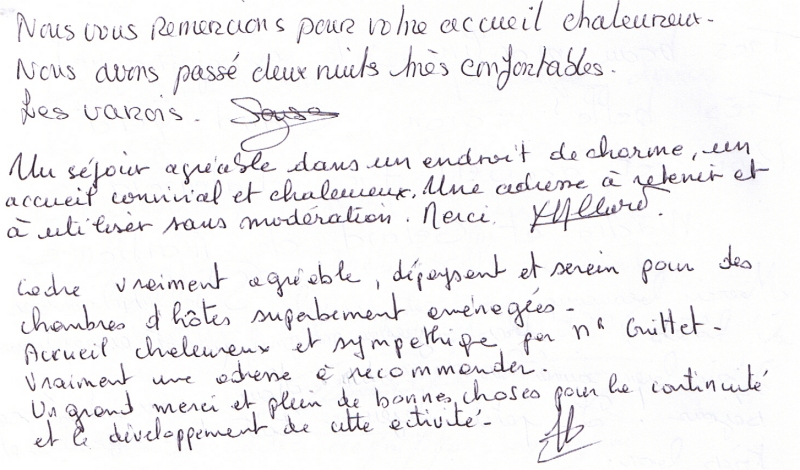 Nous vous remercions pour votre accueil chaleureux.
Nous avons passé deux nuits très confortables.
Les varois.
Un séjour agréable dans un endroit de charme, un
accueil convivial et chaleureux. Une adresse à retenir et
à utiliser sans modération. Merci.
Cadre vraiment agréable, dépaysent et serein pour des
chambres d'hôtes superbement aménagées.
Accueil chaleureux et sympathique par Mr Guittet.
Vraiment une adresse à recommander.
Un grand merci et plein de bonnes choses pour la continuité
et le développement de cette activité.